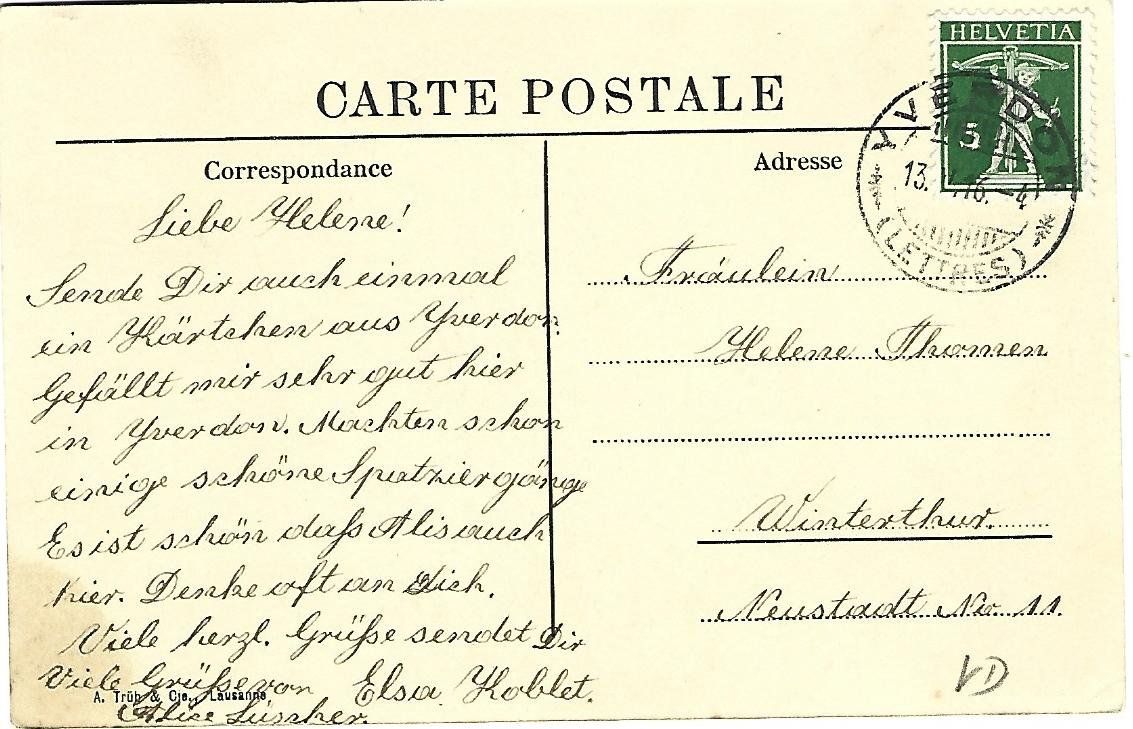 CARTE POSTALE
Correspondance
Liebe Helene!
Sende Dir auch einmal
ein Kärtchen aus Yverdon.
Gefällt mir sehr gut hier
in Yverdon. Machten schon
einige schöne Spatziergänge
Es ist schön daſs Alis auch
hier. Denke oft an Dich.
Viele herzl. Grüſse sendet Dir
Elsa Koblet.
Viele Grüſse von
Alice Lüscher.
A. Trüb & Cie., Lausanne
Adresse
HELVETIA
5
YVERDON
13. 16.-4
(LETTRES)
Fräulein
Helene Thomen
Winterthur.
Neustadt Nr. 11.
VD